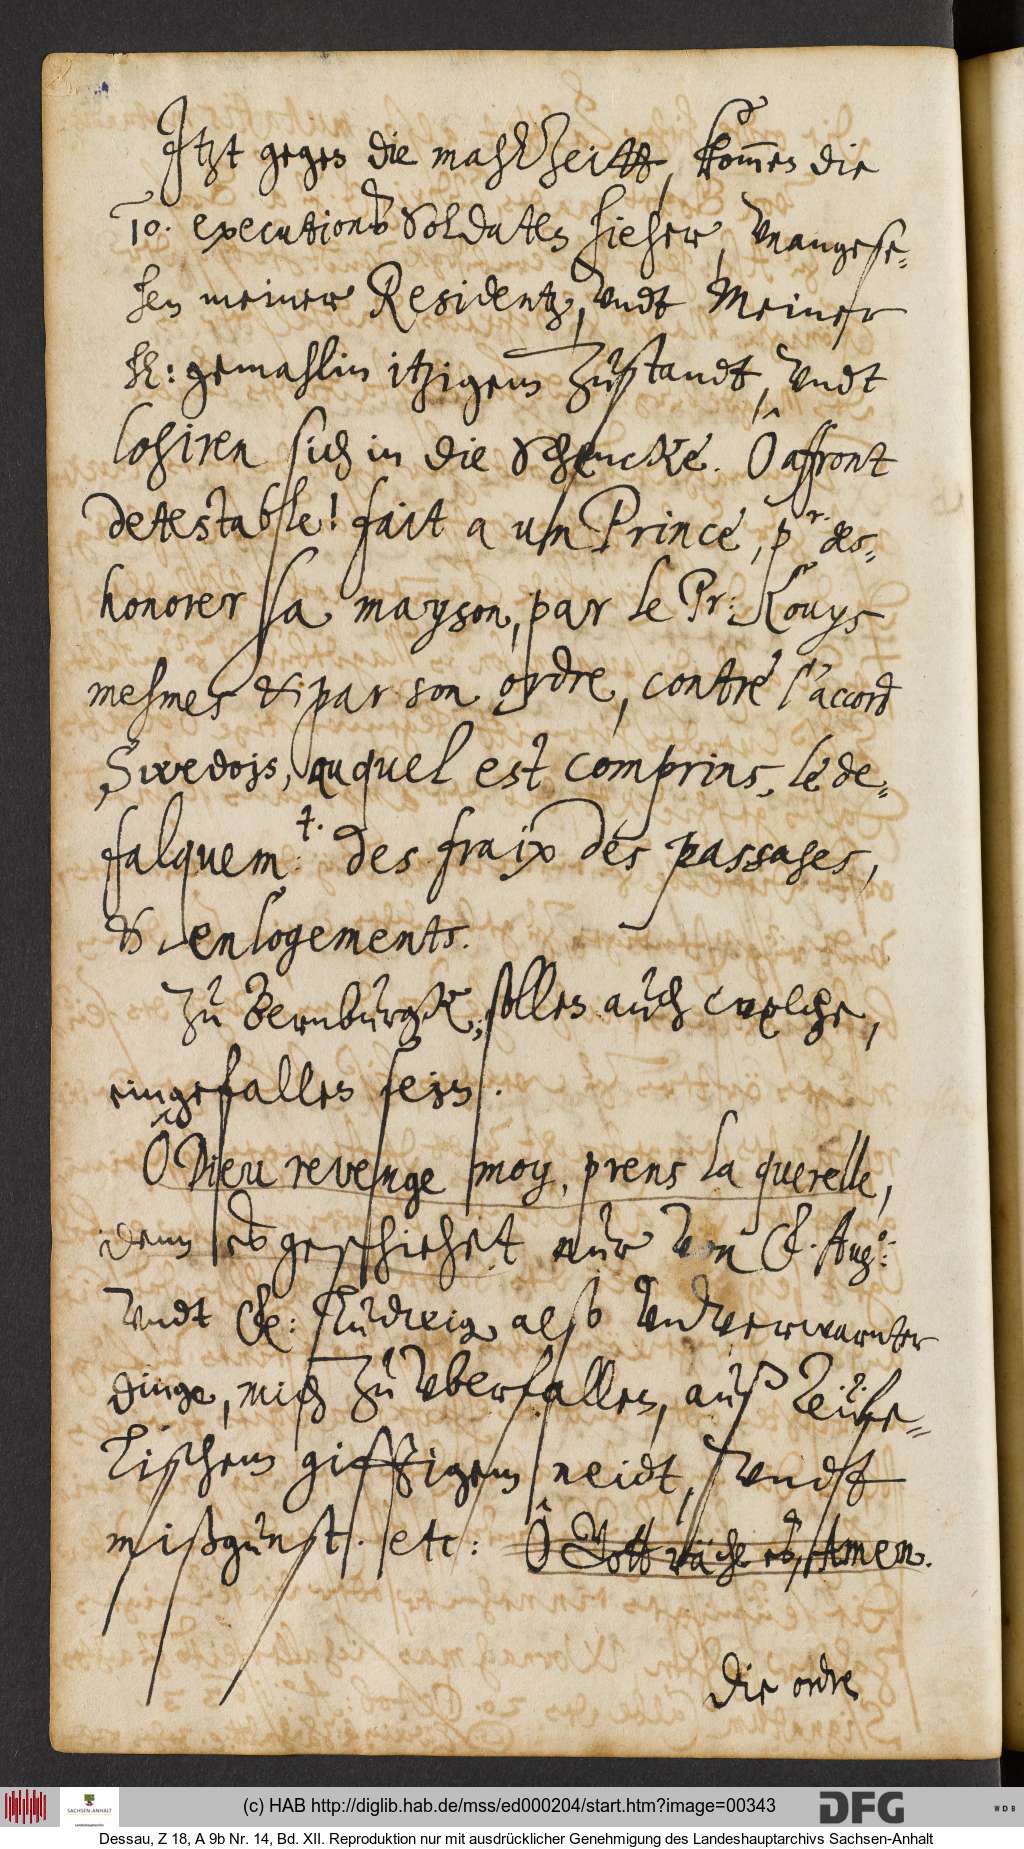 Itzt gegen die mahlzeitt, kommen die
10. executions Soldaten hieher, vnangese-
hen meiner Residentz, vndt Meiner
h: gemahlin itzigem zustandt, vndt
lohiren sich in die Schencke. Ô affront
detestable! fait a un Prince, pr. des-
honorer sa mayson, par le Pr: Louys
mesmes & par son ordre, contre l'accord
Swedois, auquel est comprins, le de-
falquem.t des fraix des passages,
& enlogements.
Zu Bernburgk, sollen auch welche,
eingefallen sein.
Ô Dieu revenge moy, prens la querelle,
denn es geschiehet nur von F. Aug:
vndt F: Ludwig, alß vndverwarnter
dinge, mich zu vberfallen, auß Teüfe-
lischem gifftigem neidt, vndt
mißgunst. etc: Ô Gott räche es, Amen.
Die ordre
(c) HAB http://diglib.hab.de/mss/ed000204/start.htm?image=00343
SACHSEN-ANHALT
DFG
WDB
Dessau, Z 18, A 9b Nr. 14, Bd. XII. Reproduktion nur mit ausdrücklicher Genehmigung des Landeshauptarchivs Sachsen-Anhalt